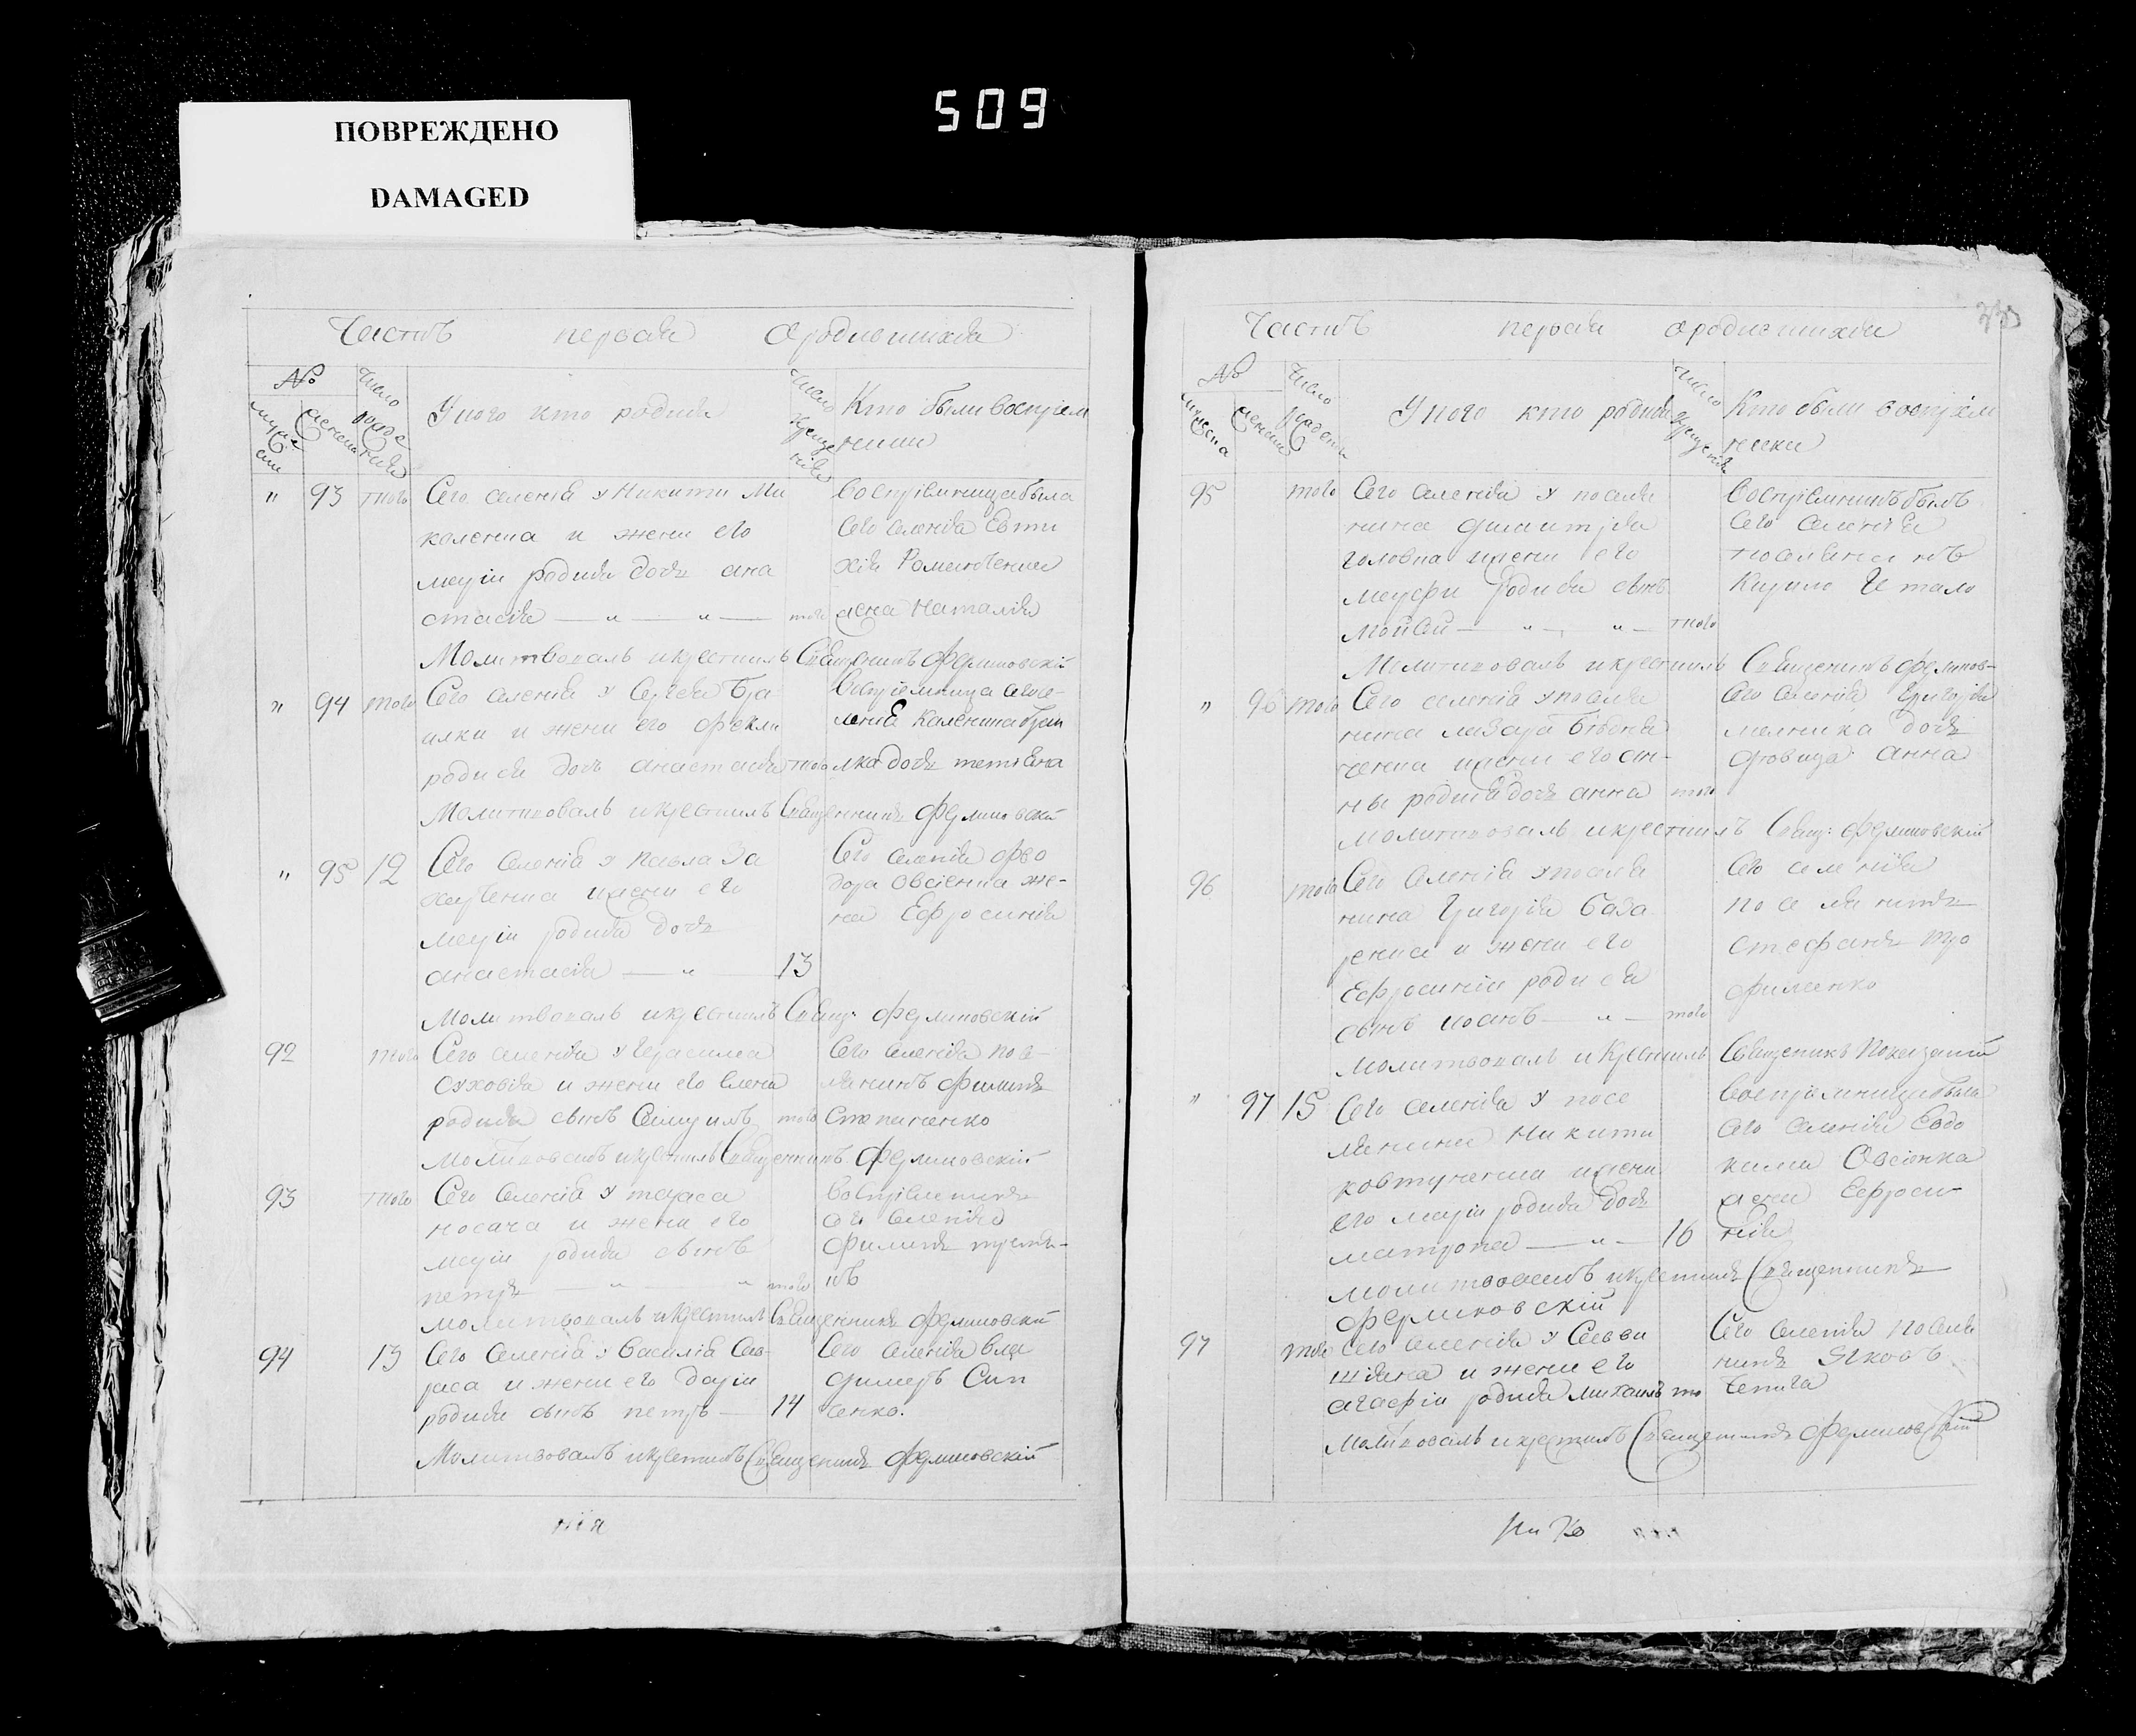 509
ПОВРЕЖДЕНО
DAMAGED
Часть первая ородившихся
№
Число рожде нія
мужес
женска
У кого кто родился
Число креще нія
Кто были воспріем
ники
" 93 того Сего селенія у Никити Ми
коленка и жени его
маріи родися дочь ана
стасія — " — " — того
Воспріемница была
Сего селенія Евти
хія Романченка
жена Наталія
Молитвовалъ икрестилъ Священникъ Фермиовскій
" 94 того Сего селенія у Сергея Бра
илки и жени его Фекли
родися дочь анастасія того
Воспріемница сего се-
ленія Каленика браи
лка дочь тетіяна
Молитвовалъ икрестилъ Священникъ Фермиовскій
" 95 12 Сего селенія у Павла За
харченка ижени его
маріи родися дочь
анастасія — " — 13
Сего селенія Фео
дора Овсіенка же-
на Ефросинія
Молитвовалъ икрестилъ Свящ: Фермиовскій
92 того Сего селенія у Герасима
Суховія и жени его Елени
родися синъ Самуилъ того
Сего селенія посе-
лянинъ Филипъ
Степаненко
Молитвовалъ икрестилъ Священникъ Фермиовскій
93 того Сего селенія у тараса
носача и жени его
маріи родися синъ
петръ — " — " того
Воспріемникъ
сего селенія
Филипъ
Молитвовалъ икрестилъ Священникъ Фермиовскій
94 13 Сего Селенія у Василія
и жени его Даріи
родися синъ петръ — 14
Сего селенія Вла
димеръ Сип
ченко.
Молитвовалъ икрестилъ Священникъ Фермиовскій
нія
Часть первая ородившихся
№
мужеска
женска
Число рождения
У кого кто родися
Число крещенія
Кто были воспріем
ники
95 того Сего селенія у поселя
нина Димитрія
головка ижени его
родися синъ
Мойсей — " — " — того
Воспріемникъ былъ
Сего селенія
поселянинъ
Кирило
Молитвовалъ икрестилъ Священникъ Фермиов-
" 96 того Сего селенія у поселя
нина лазаря
ченка ижени его ан-
ны родися дочь анна того
Сего селенія Григорія
мелника дочь
дѣвица анна
молитвовалъ икрестилъ Свящ: Фермиовскій
96 того Сего селенія у поселя
нина Григорія База
ренка и жени его
Ефросиніи родися
синъ иоанъ — " — того
Сего селенія
поселянинъ
Стефанъ Тро
фименко
молитвовалъ и крестилъ Священникъ Показаній
" 97 15 Сего селенія у посе
лянина Никити
ковтуненка ижени
его маріи родися дочь
матрона — " — 16
Воспріемница была
Сего селенія Евдо
кима Овсіенка
жена Ефроси-
нія
молитвовалъ икрестилъ Священникъ
Фермиовскій
97 того Сего селенія у Савви
и жени его
агафіи родися михаилъ то
Сего селенія поселя
нинъ Яковъ
Чепига
Молитвовалъ икрестилъ Священникъ Фермиовскій